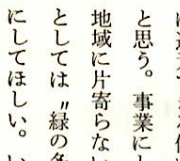 と思う。事業にし
地域に片寄らない
としては〝緑の
にしてほしい。い